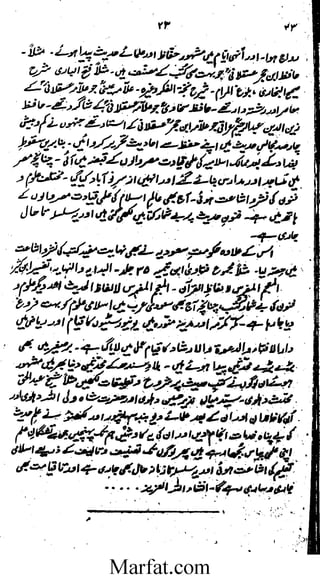 ۲۳ ۲۳
رواج ہوا۔ اور انہی ایام میں مشہور حفاظ اور علمائے حدیث پیدا ہوئے۔ مثلاً۔
حافظ ابن حجر عسقلانیؒ جو بہت سی کتب کے مصنف ہیں۔ مثلاً فتح الباری شرح
صحیح البخاری، بلوغ المرام۔ شرح نخبۃ الفکر وغیرہ۔ علامہ
معاصر اور رشتہ دار تھے۔ حافظ سخاویؒ جو علامہ عسقلانیؒ کے شاگرد تھے۔ حافظ
زین الدین عبدالرحیم عراقیؒ جو علامہ ابن حجر عسقلانیؒ کے استاد تھے جنہوں نے کم و بیش
چار صد مجالس حدیث میں اپنے حفظ سے احادیث تحریر کروائیں۔ بنا بریں سقوط
بغداد کے بعد ممالک اسلامیہ کی علمی قیادت مصر والوں کے قبضہ میں آئی۔ چنانچہ مصر
میں مساجد اور مدارس بنائے گئے اور انہیں از سر نو آباد کیا گیا۔ مختلف علوم و
فنون کی نشر و اشاعت ہوئی۔ آج بھی عالم اسلام کی علمی قیادت مصر والوں کے
ہاتھ میں ہے۔ فنون حدیث پر بے شمار کتابیں لکھی گئی ہیں اور یہ سلسلہ تا حال
جاری ہے۔
اس کے علاوہ حکومت سعودیہ نے بھی نہایت مفید کتب کی نشر و اشاعت
میں حصہ لیا۔ مثلاً مجموع فتاویٰ ابن تیمیہ ۳۵ جلد۔ البدایہ والنہایہ، تفسیر ابن کثیر
المعجم المفہرس لالفاظ القرآن۔ المعجم المفہرس لالفاظ الحدیث اور دیگر علوم و
فنون کی بے شمار کتب چنانچہ آج بھی سعودی عرب میں اسلامی علوم کو بہت فروغ
دیا جا رہا ہے۔ مکہ مکرمہ اور مدینہ منورہ میں یونیورسٹیوں کا قیام اور ریاض میں
دار الافتاء والدعوۃ والارشاد کا قیام عمل میں لایا گیا ہے۔ برصغیر میں بھی
بڑے بڑے محدثین پیدا ہوئے ہیں۔ بلاد سندھ کے محدثین دنیا بھر میں مشہور
ہوئے ان لوگوں نے کتب حدیث پر شروح و تعلیقات لکھیں مثلاً شیخ عبدالحق
محدث دہلوی، سید میاں نذیر حسین دہلوی اور حضرت شاہ ولی اللہ دہلوی اور
ان کا خاندان اور ان کے بعد علمائے دیوبند اور لکھنؤ نے علم حدیث
کی بے پناہ خدمات انجام دیں اور ان کی یہ کاوشیں ہم تک پہنچیں جس سے تشنگان علم
اپنی علمی پیاس بجھا رہے ہیں تصنیف و تالیف کے ذریعے اسلامی
تعلیم کی اشاعت ہوئی اور یہ سلسلہ تا زمانہ حال بھی جاری ہے اور تا قیامت بھی
جاری و ساری رہے گا۔ انشاء اللہ العزیز۔ ....
Marfat.com